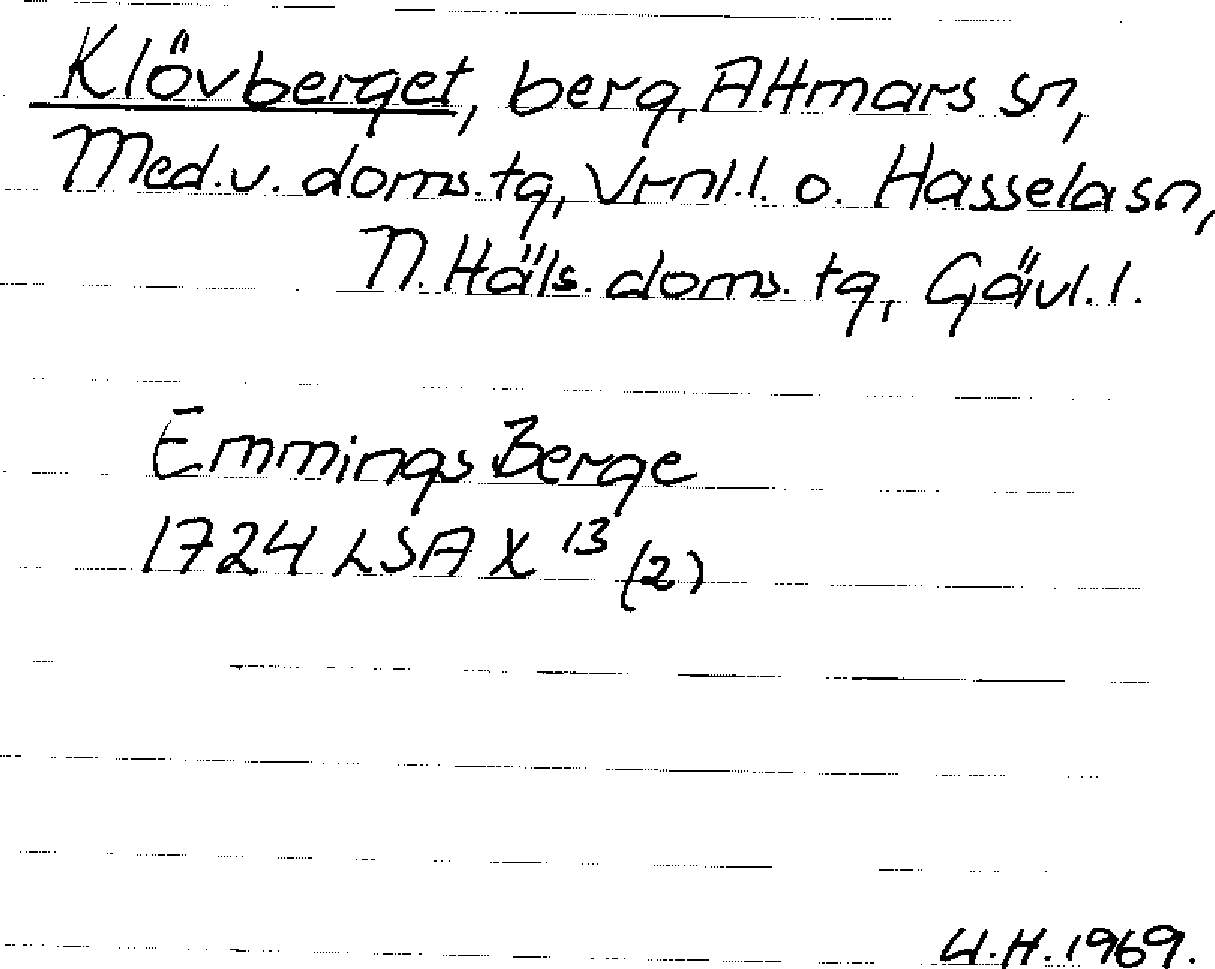 Klövberget, berg, Attmars sn,
Med.v. doms.tg, Vrnl.l. o. Hassela sn,
N. Häls. doms. tg, Gävl.l.
Emmings Berge
1724 LSA X 13 (2)
U.H. 1969.